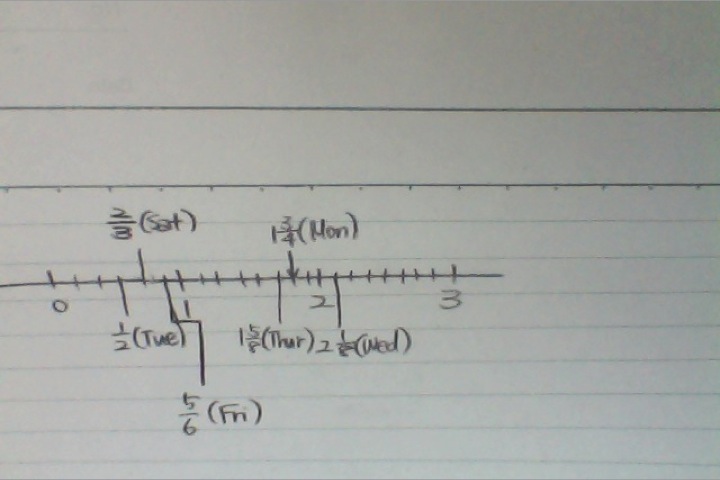 2/3 (Sat) 1 3/4 (Mon)
0 1 2 3
1/2 (Tue) 1 5/8 (Thur) 2 1/8 (Wed)
5/6 (Fri)